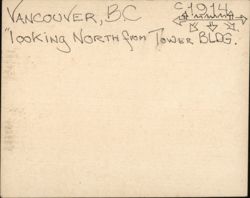 VANCOUVER, BC C 1914
"LOOKING NORTH from TOWER BLDG.